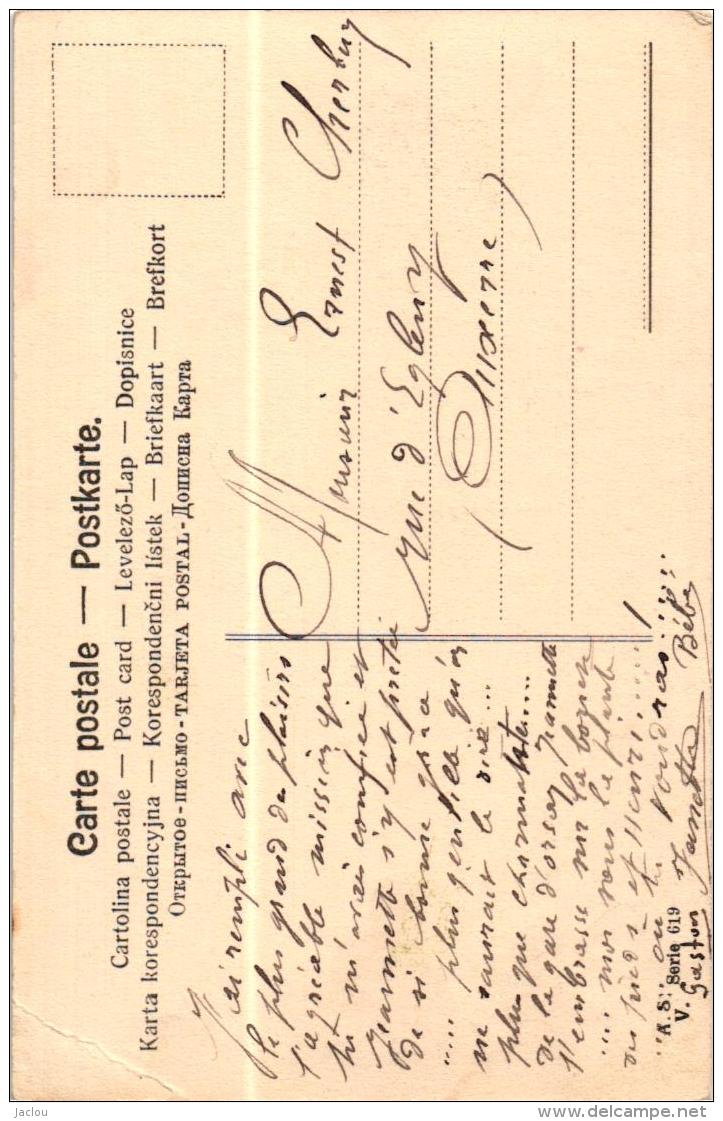 Carte postale — Postkarte.
Cartolina postale — Post card — Levelező-Lap — Dopisnice
Karta korespondencyjna — Korespondenčni listek — Briefkaart — Brefkort
Открытое-письмо-TARJETA POSTAL-Дописна Карта
J'ai rempli avec
le plus grand des plaisirs
l'agréable mission que
tu m'avais confiée et
Jeannette s'y est prêtée
de si bonne grâce
..... plus gentille qu'on
ne saurait le dire ...
plus que charmante.....
de la gare d'orsay Jeannette
t'embrasse sur la bouche
.... moi sous la plante
des pieds et Henri......
ou tu voudras.......
Gaston Jeannette Bébé
Monsieur Ernest
Rue d'Egleny
(Auxerre)
A. S. Serie 619
V.
Jaclou
delcampe.net